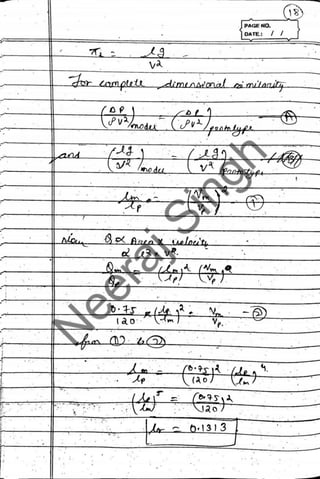 18
PAGE NO.
DATE: / /
π₂ = lg / V²
For complete dimensional similarity
(ΔP / ρV²)model = (ΔP / ρV²)prototype — A
and (lg / V²)model = (lg / V²)prototype
lm / lp = (Vm / Vp)² ①
Now Q ∝ Area × velocity
∝ l² × V
Qm / Qp = (lm / lp)² (Vm / Vp)
0.75 / 120 × (lp / lm)² = Vm / Vp — ②
from ① & ②
lm / lp = (0.75 / 120)² (lp / lm)⁴
(lp / lm)⁵ = (0.75 / 120)²
lr = 0.1313
Neeraj Singh